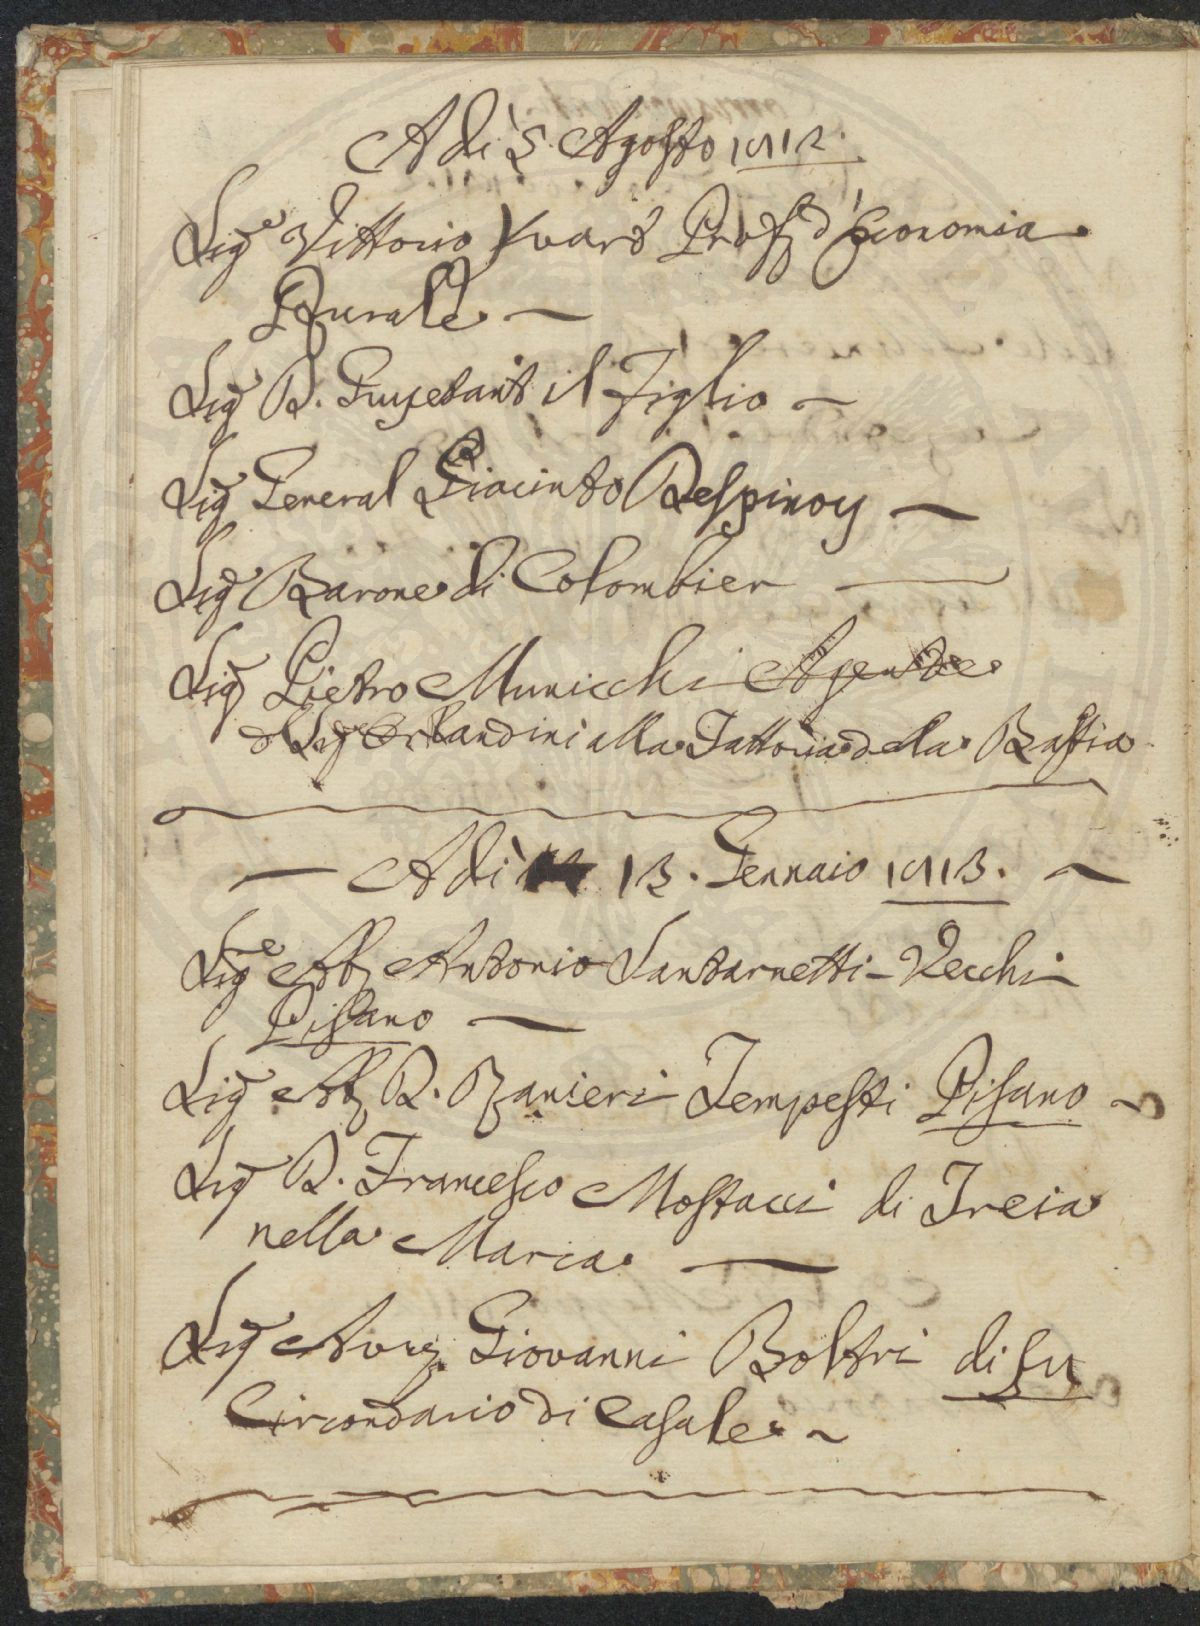 Adì 5 Agosto 1812.
Sig.e Vittorio Yvart Prof. d'Economia
Rurale —
Sig.e D. Guyetant il Figlio —
Sig.e General Giacinto Despinoy —
Sig.e Barone di Colombier —
Sig.e Pietro Municchi Agente
Sig. Orlandini alla Fattoria della Bastia
— Adì 13. Gennaio 1813. —
Sig.e Ab. Antonio Santarnetti-Vecchi
Pisano —
Sig.e Ab. D. Ranieri Tempesti Pisano
Sig.e D. Francesco Mostacci di Treia
nella Marca —
Sig.e Avv. Giovanni Boltri
Circondario di Casale